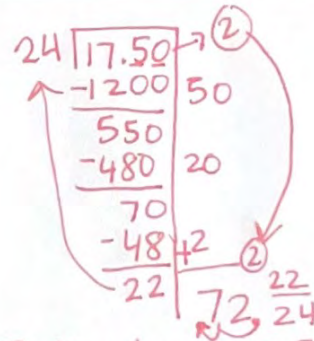 24 17.50 → 2
-1200 50
550
-480 20
70
-48 +2 2
22 72. 22/24